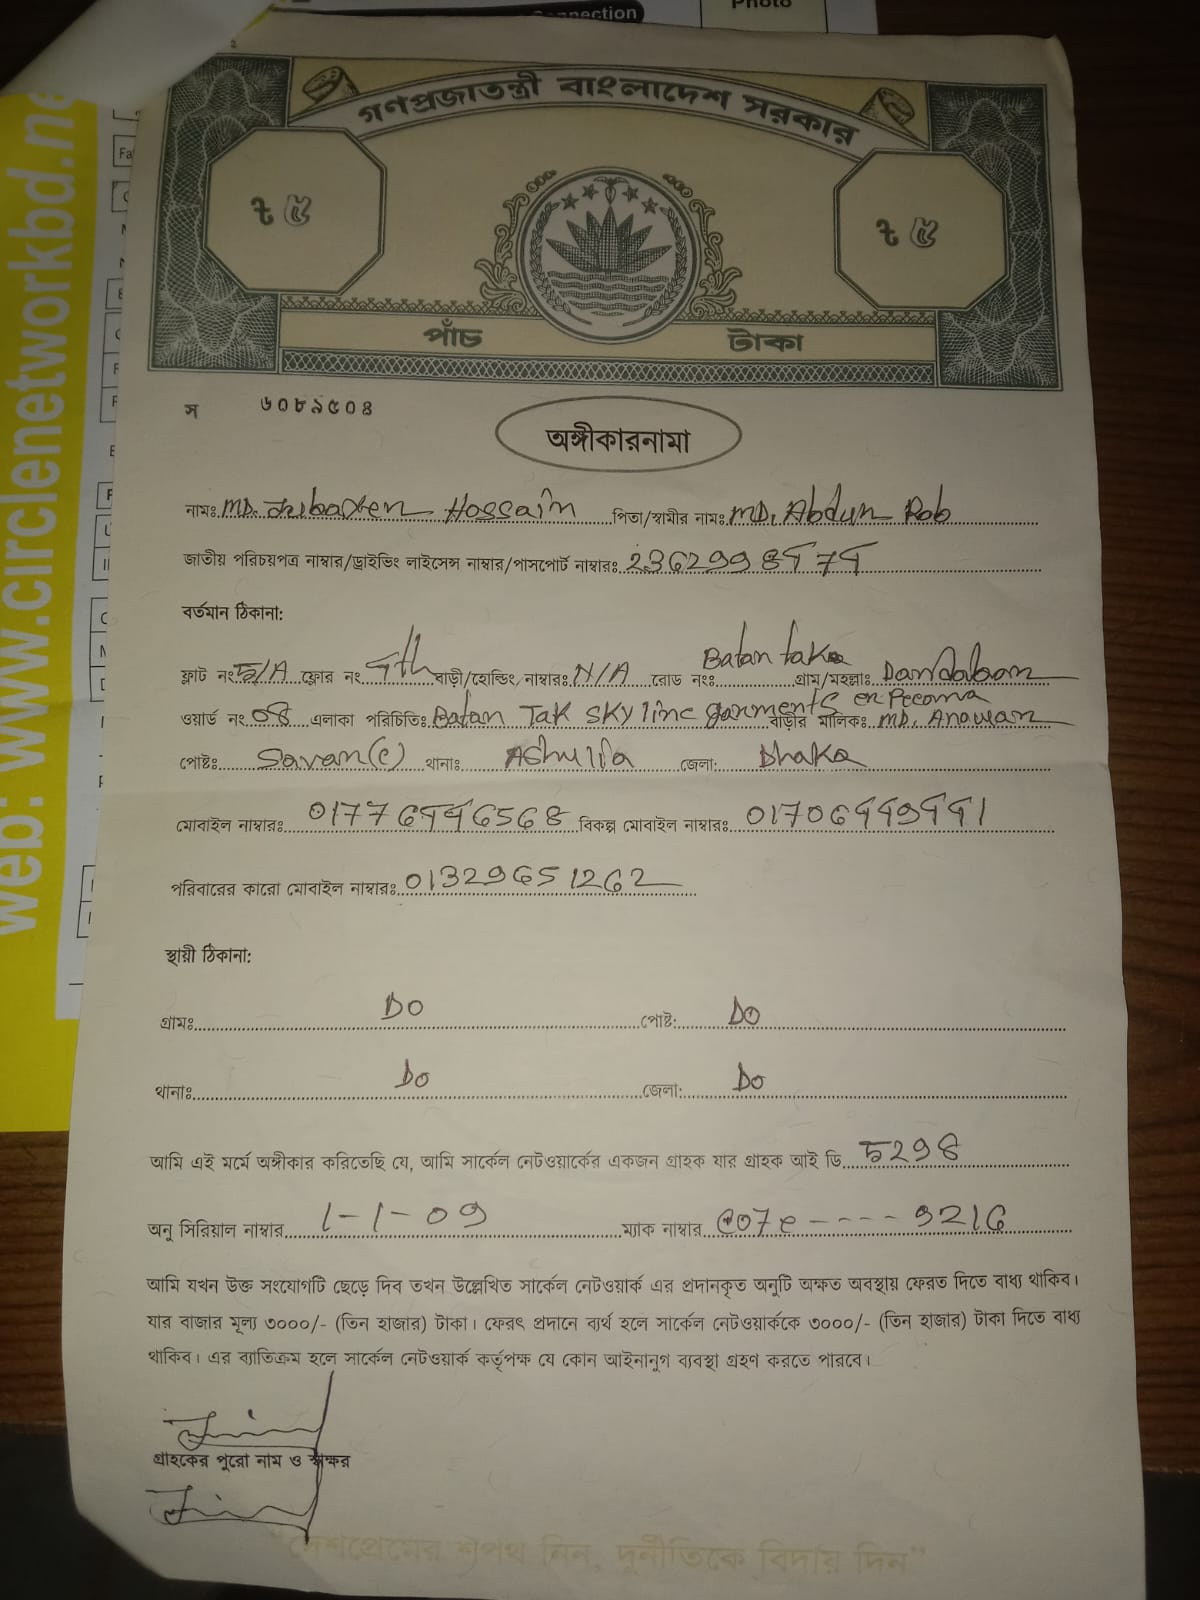 nnection
Photo
web: www.circlenetworkbd.ne
গণপ্রজাতন্ত্রী বাংলাদেশ সরকার
৳ ৫ ৳ ৫
পাঁচ টাকা
স ৬০৮৯৫০৪
অঙ্গীকারনামা
নামঃ MD. Hossain পিতা/স্বামীর নাম: MD. Abdur Rob
জাতীয় পরিচয়পত্র নাম্বার/ড্রাইভিং লাইসেন্স নাম্বার/পাসপোর্ট নাম্বারঃ
বর্তমান ঠিকানা:
ফ্লাট নং 5/A ফ্লোর নং 5th বাড়ী/হোল্ডিং নাম্বারঃ N/A রোড নংঃ Batan take গ্রাম/মহল্লাঃ
ওয়ার্ড নং 08 এলাকা পরিচিতিঃ Batan Tak Skyline garments বাড়ীর মালিকঃ MD. Anawar
পোষ্টঃ Savar(c) থানাঃ Ashulia জেলা: Dhaka
মোবাইল নাম্বারঃ 01776556568 বিকল্প মোবাইল নাম্বারঃ
পরিবারের কারো মোবাইল নাম্বারঃ 01329651262
স্থায়ী ঠিকানা:
গ্রামঃ DO পোষ্ট: DO
থানাঃ DO জেলা: DO
আমি এই মর্মে অঙ্গীকার করিতেছি যে, আমি সার্কেল নেটওয়ার্কের একজন গ্রাহক যার গ্রাহক আই ডি 5298
অনু সিরিয়াল নাম্বার 1-1-09 ম্যাক নাম্বার C07e---- 9216
আমি যখন উক্ত সংযোগটি ছেড়ে দিব তখন উল্লেখিত সার্কেল নেটওয়ার্ক এর প্রদানকৃত অনুটি অক্ষত অবস্থায় ফেরত দিতে বাধ্য থাকিব।
যার বাজার মূল্য ৩০০০/- (তিন হাজার) টাকা। ফেরৎ প্রদানে ব্যর্থ হলে সার্কেল নেটওয়ার্ককে ৩০০০/- (তিন হাজার) টাকা দিতে বাধ্য
থাকিব। এর ব্যাতিক্রম হলে সার্কেল নেটওয়ার্ক কর্তৃপক্ষ যে কোন আইনানুগ ব্যবস্থা গ্রহণ করতে পারবে।
গ্রাহকের পুরো নাম ও স্বাক্ষর
"দেশপ্রেমের শপথ নিন, দুর্নীতিকে বিদায় দিন"